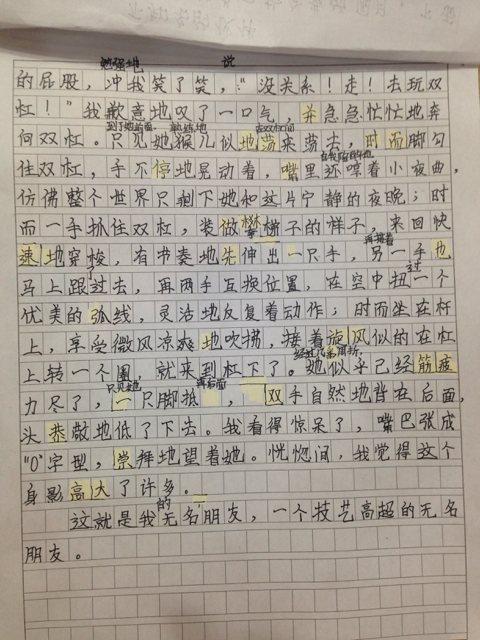 勉强地 说
的屁股，冲我笑了笑，：“没关系！走！去玩双
杠！”我歉意地叹了一口气，并急急忙忙地奔
到了她前面 熟练地 在双杠间
向双杠。只见她猴儿似地荡来荡去，时而脚勾
住双杠，手不停地晃动着，嘴里还哼着小夜曲，
仿佛整个世界只剩下她和这片宁静的夜晚；时
而一手抓住双杠，装做梯子的样子，来回快
再接着
速地穿梭，有节奏地先伸出一只手，另一手也
了 过
马上跟过去，再两手互换位置，在空中扭一个
优美的弧线，灵活地反复着动作；时而坐在杆
上，享受微风凉爽地吹拂，接着旋风似的在杠
上转一个圈，就来到杠下了。她似乎已经筋疲
只见她
力尽了，一只脚抵，双手自然地背在后面，
头恭敬地低了下去。我看得惊呆了，嘴巴张成
“O”字型，崇拜地望着她。恍惚间，我觉得这个
身影高大了许多。
的
这就是我无名朋友，一个技艺高超的无名
朋友。